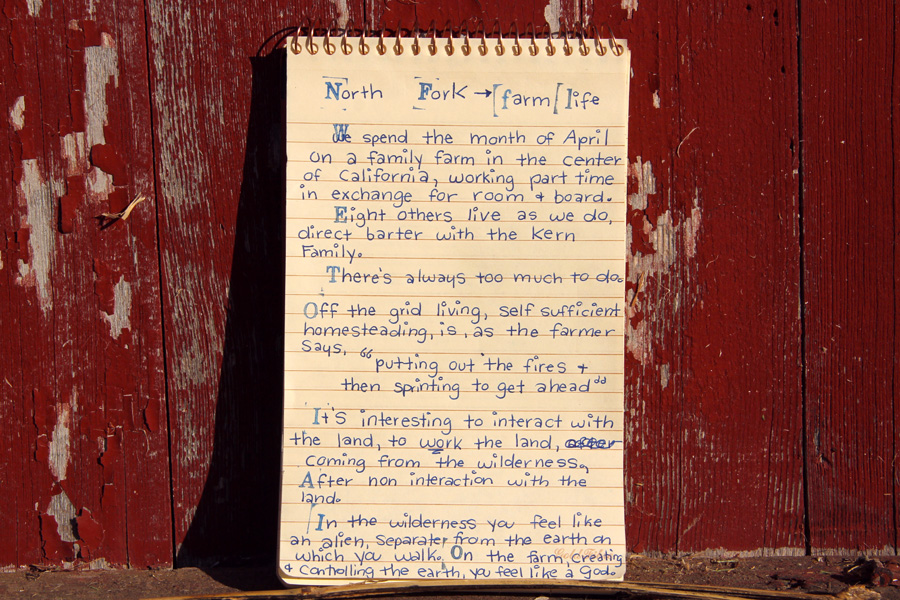 North Fork → [farm [life
We spend the month of April
on a family farm in the center
of California, working part time
in exchange for room & board.
Eight others live as we do,
direct barter with the Kern
Family.
There's always too much to do.
Off the grid living, self sufficient
homesteading, is, as the farmer
says, "putting out the fires &
then sprinting to get ahead"
It's interesting to interact with
the land, to work the land,
coming from the wilderness.
After non interaction with the
land.
In the wilderness you feel like
an alien, separater from the earth on
which you walk. On the farm, creating
& controlling the earth, you feel like a God.